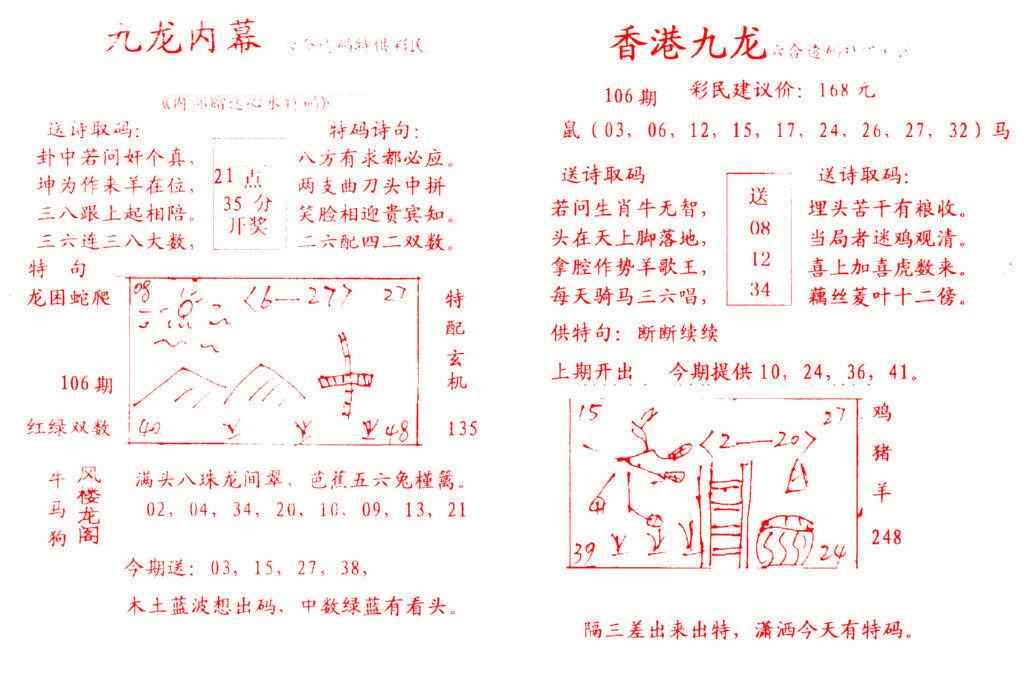 九龙内幕
送诗取码：
卦中若问奸个真，
坤为作来羊在位，
三八跟上起相陪。
三六连三八大数，
21 点
35 分
开奖
特码诗句：
八方有求都必应。
两支曲刀头中拼
笑脸相迎贵宾知。
二六配四二双数。
特 句
龙困蛇爬
106期
红绿双数
08
〈6—27〉
27
40
48
特配玄机
135
牛马狗
风楼龙阁
满头八珠龙间翠，芭蕉五六兔槿篱。
02，04，34，20，10，09，13，21
今期送：03，15，27，38，
木土蓝波想出码，中数绿蓝有看头。
香港九龙
106期 彩民建议价：168元
鼠（03，06，12，15，17，24，26，27，32）马
送诗取码
若问生肖牛无智，
头在天上脚落地，
拿腔作势羊歌王，
每天骑马三六唱，
送
08
12
34
送诗取码：
埋头苦干有粮收。
当局者迷鸡观清。
喜上加喜虎数来。
藕丝菱叶十二傍。
供特句：断断续续
上期开出 今期提供10，24，36，41。
15
〈2—20〉
27
39
24
鸡
猪
羊
248
隔三差出来出特，潇洒今天有特码。